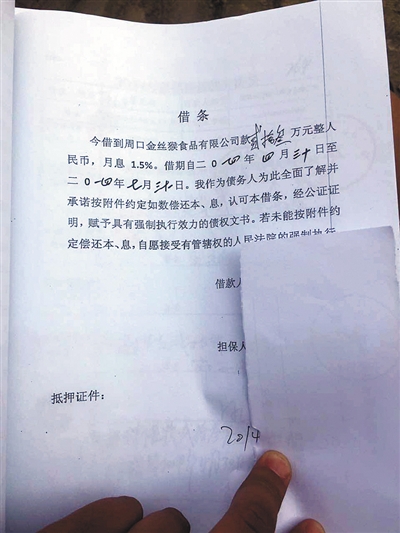 借条
今借到周口金丝猴食品有限公司款贰拾叁万元整人
民币，月息 1.5%。借期自二0一四年四月三十日至
二0一四年七月三十日。我作为债务人为此全面了解并
承诺按附件约定如数偿还本、息，认可本借条，经公证证
明，赋予具有强制执行效力的债权文书。若未能按附件约
定偿还本、息，自愿接受有管辖权的人民法院的强制执行
借款人
担保人
抵押证件：
2014